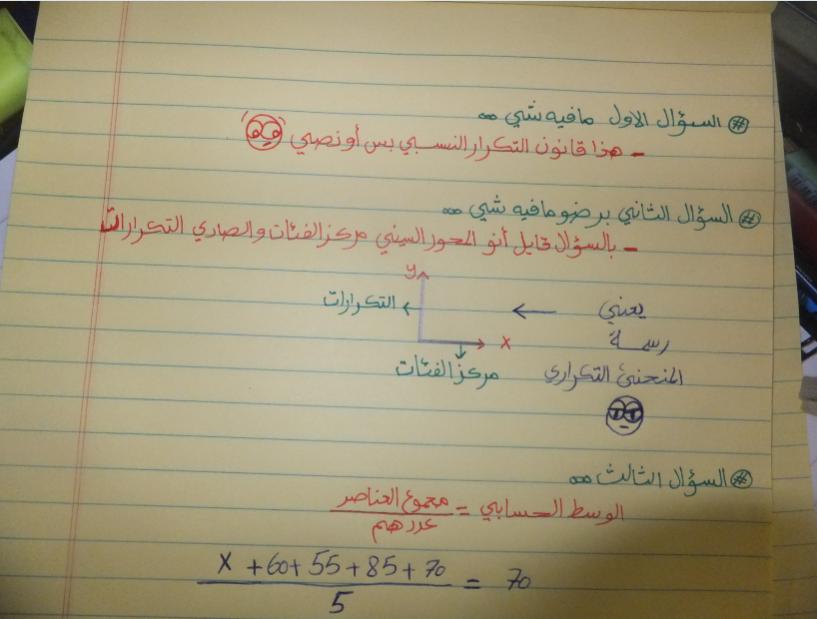 # السؤال الاول مافيه شي
- هذا قانون التكرار النسبي بس أو نصي
# السؤال الثاني برضو مافيه شي
- بالسؤال قايل أنو المحور السيني مركز الفئات والصادي التكرارات
y
يعني ← التكرارات
رسمة x
المنحنى التكراري مركز الفئات
# السؤال الثالث
الوسط الحسابي = مجموع العناصر
عددهم
x + 60 + 55 + 85 + 70 = 70
5